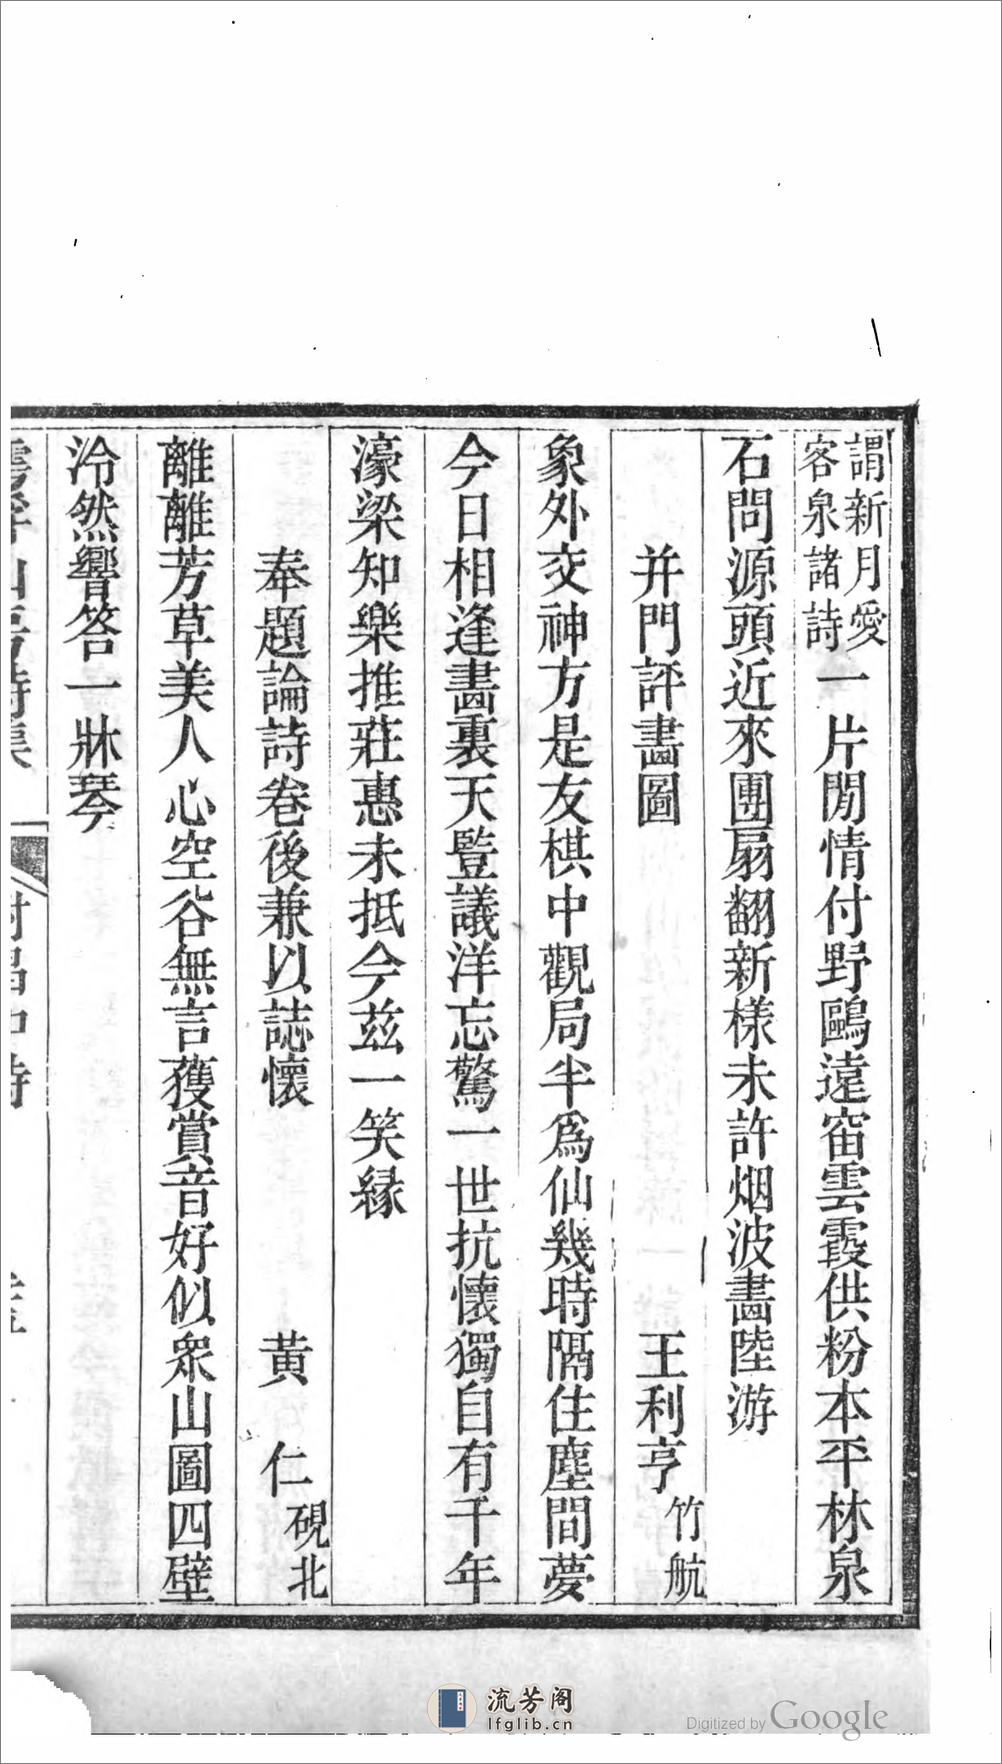 謂新月愛
客泉諸詩
一片閒情付野鷗遠宙雲霞供粉本平林泉
石問源頭近來團扇翻新樣未許烟波畵陸游
并門評畵圖 王利亨 竹航
象外交神方是友棋中觀局半爲仙幾時隔住塵間夢
今日相逢畵裏天豎議洋忘驚一世抗懷獨自有千年
濠梁知樂推莊惠未抵今茲一笑緣
奉題論詩卷後兼以誌懷 黃仁 硯北
離離芳草美人心空谷無言獲賞音好似眾山圖四壁
泠然響答一牀琴
流芳阁
lfglib.cn
Digitized by Google